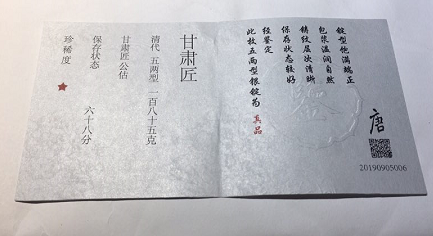 锭型饱满端正
包浆温润自然
铸纹层次清晰
保存状态较好
经鉴定
此枚五两型银锭为 真品
唐
20190905006
甘肃匠
清代 五两型 一百八十五克
甘肃匠 公估
保存状态 六十八分
珍稀度 ★